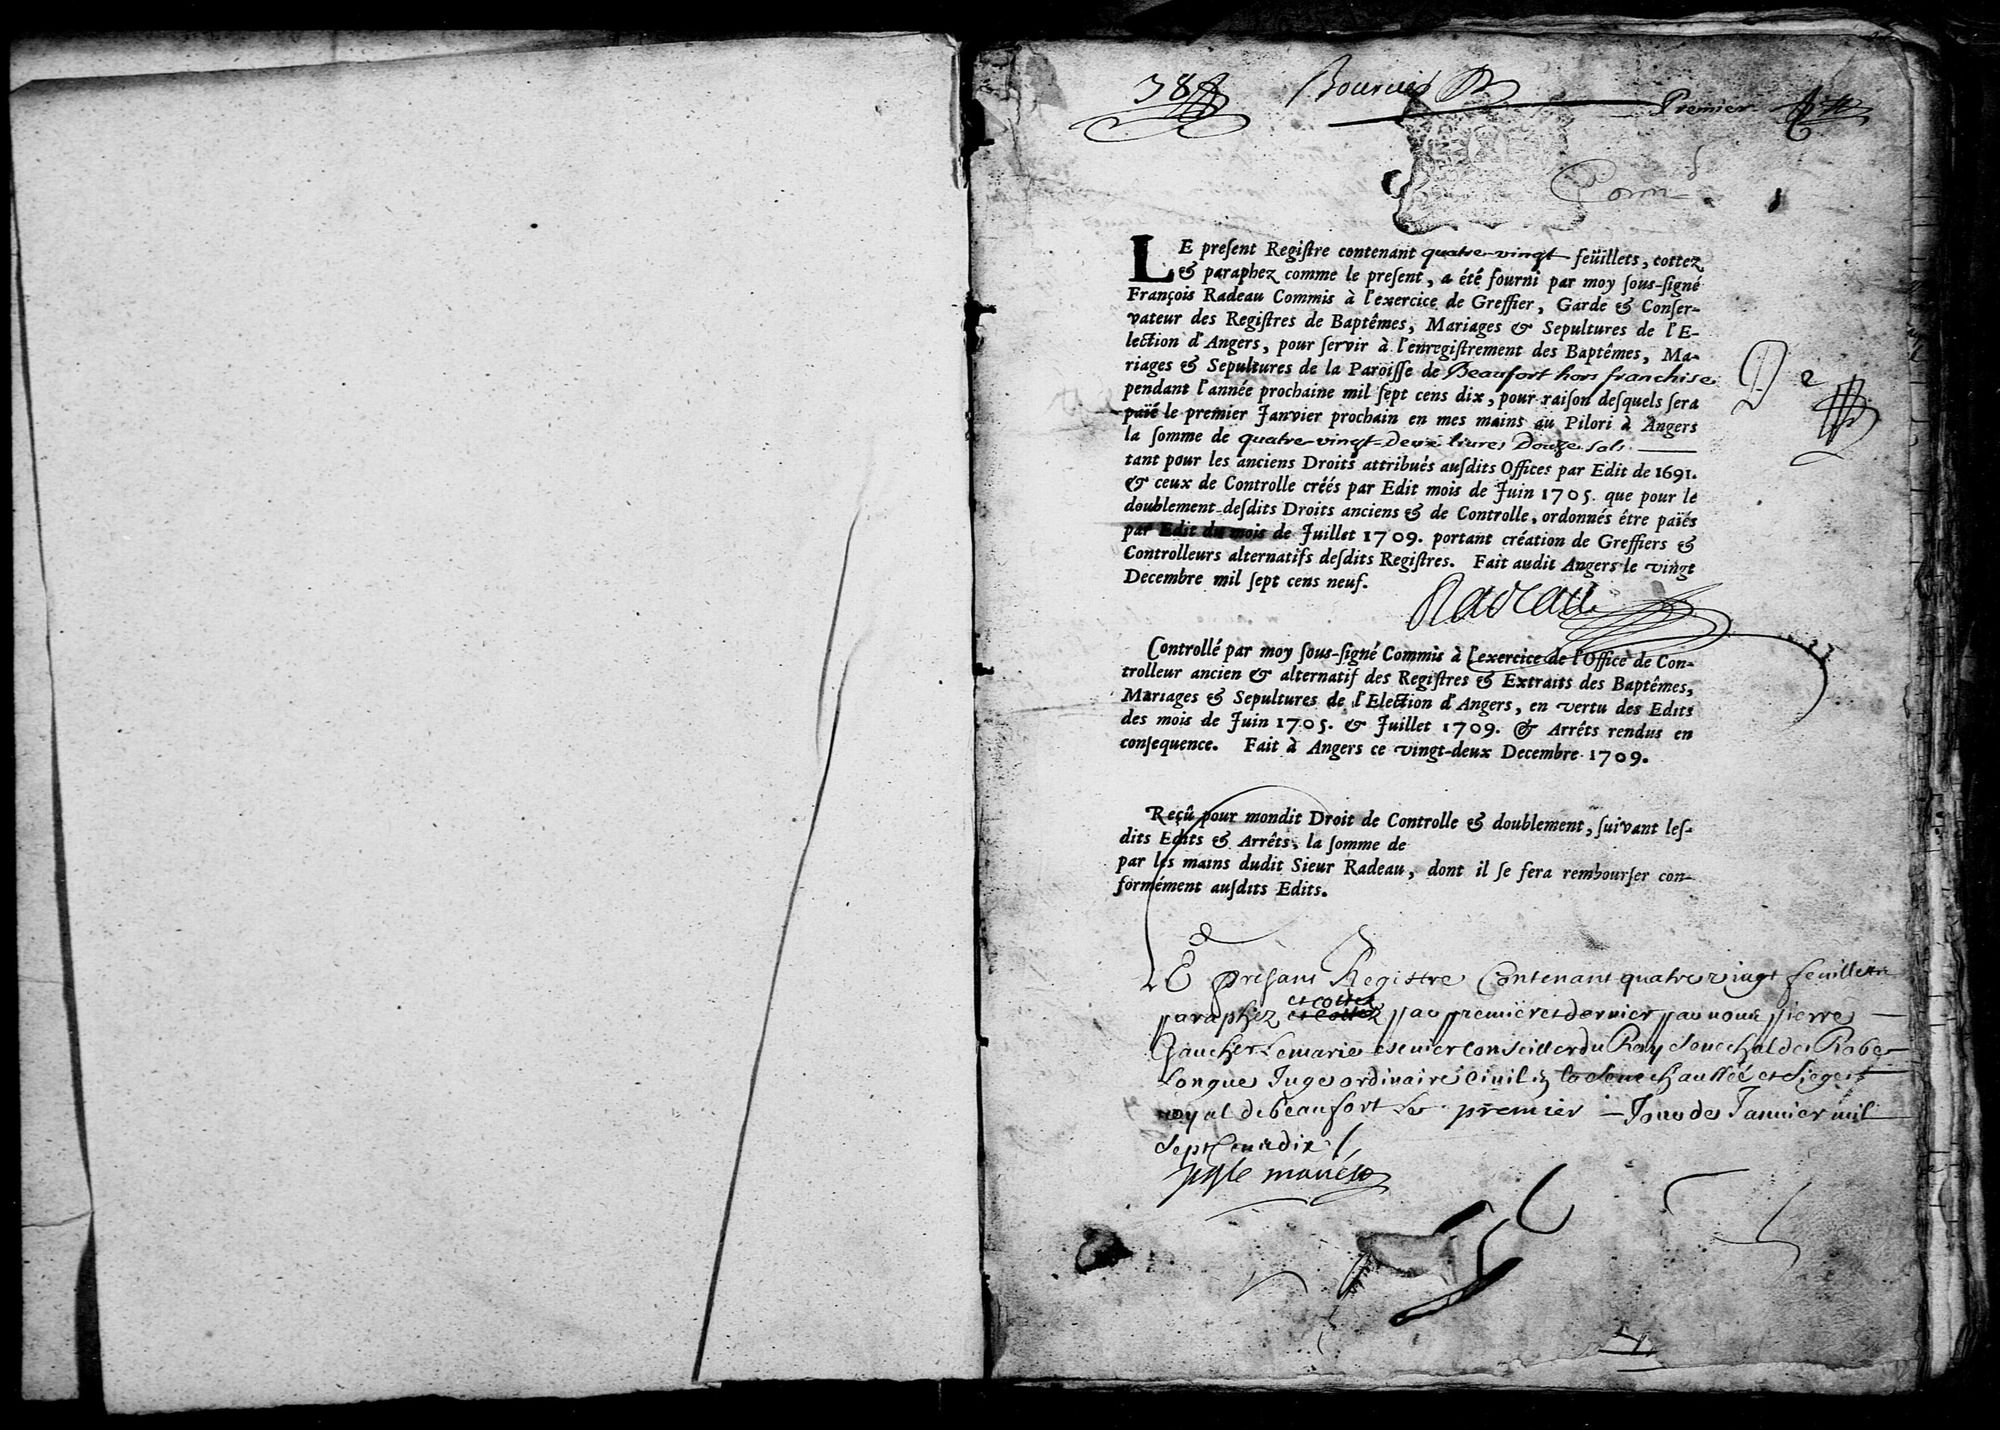 38
Bourcier
Premier
Com
LE preſent Regiſtre contenant quatre-vingt feüillets, cottez
& paraphez comme le preſent, a été fourni par moy ſous-ſigné
François Radeau Commis à l'exercice de Greffier, Garde & Conſer-
vateur des Regiſtres de Baptêmes, Mariages & Sepultures de l'E-
lection d'Angers, pour ſervir à l'enregiſtrement des Baptêmes, Ma-
riages & Sepultures de la Paroiſſe de Beaufort hors franchise
De
pendant l'année prochaine mil ſept cens dix, pour raiſon deſquels ſera
païé le premier Janvier prochain en mes mains au Pilori à Angers
la ſomme de quatre-vingt-Deux livres Douze sols
tant pour les anciens Droits attribués auſdits Offices par Edit de 1691.
& ceux de Controlle créés par Edit mois de Juin 1705. que pour le
doublement deſdits Droits anciens & de Controlle, ordonnés être païés
par Edit du mois de Juillet 1709. portant création de Greffiers &
Controlleurs alternatifs deſdits Regiſtres. Fait audit Angers le vingt
Decembre mil ſept cens neuf.
Radeau
Controllé par moy ſous-ſigné Commis à l'exercice de l'Office de Con-
trolleur ancien & alternatif des Regiſtres & Extraits des Baptêmes,
Mariages & Sepultures de l'Election d'Angers, en vertu des Edits
des mois de Juin 1705. & Juillet 1709. & Arrêts rendus en
conſequence. Fait à Angers ce vingt-deux Decembre 1709.
Reçû pour mondit Droit de Controlle & doublement, ſuivant leſ-
dits Edits & Arrêts, la ſomme de
par les mains dudit Sieur Radeau, dont il ſe fera rembourſer con-
formément auſdits Edits.
Le presant Registre Contenant quatre vingt feuillets
et cottez
paraphez et cottez par premier et dernier par nous pierre
Gaucher Lemarie escuier Conseiller du Roy Senechal de Robe
Longue Juge ordinaire Civil en la Senechaussée et Siege
royal de beaufort Le premier Jour de Janvier mil
Sept Cents dix